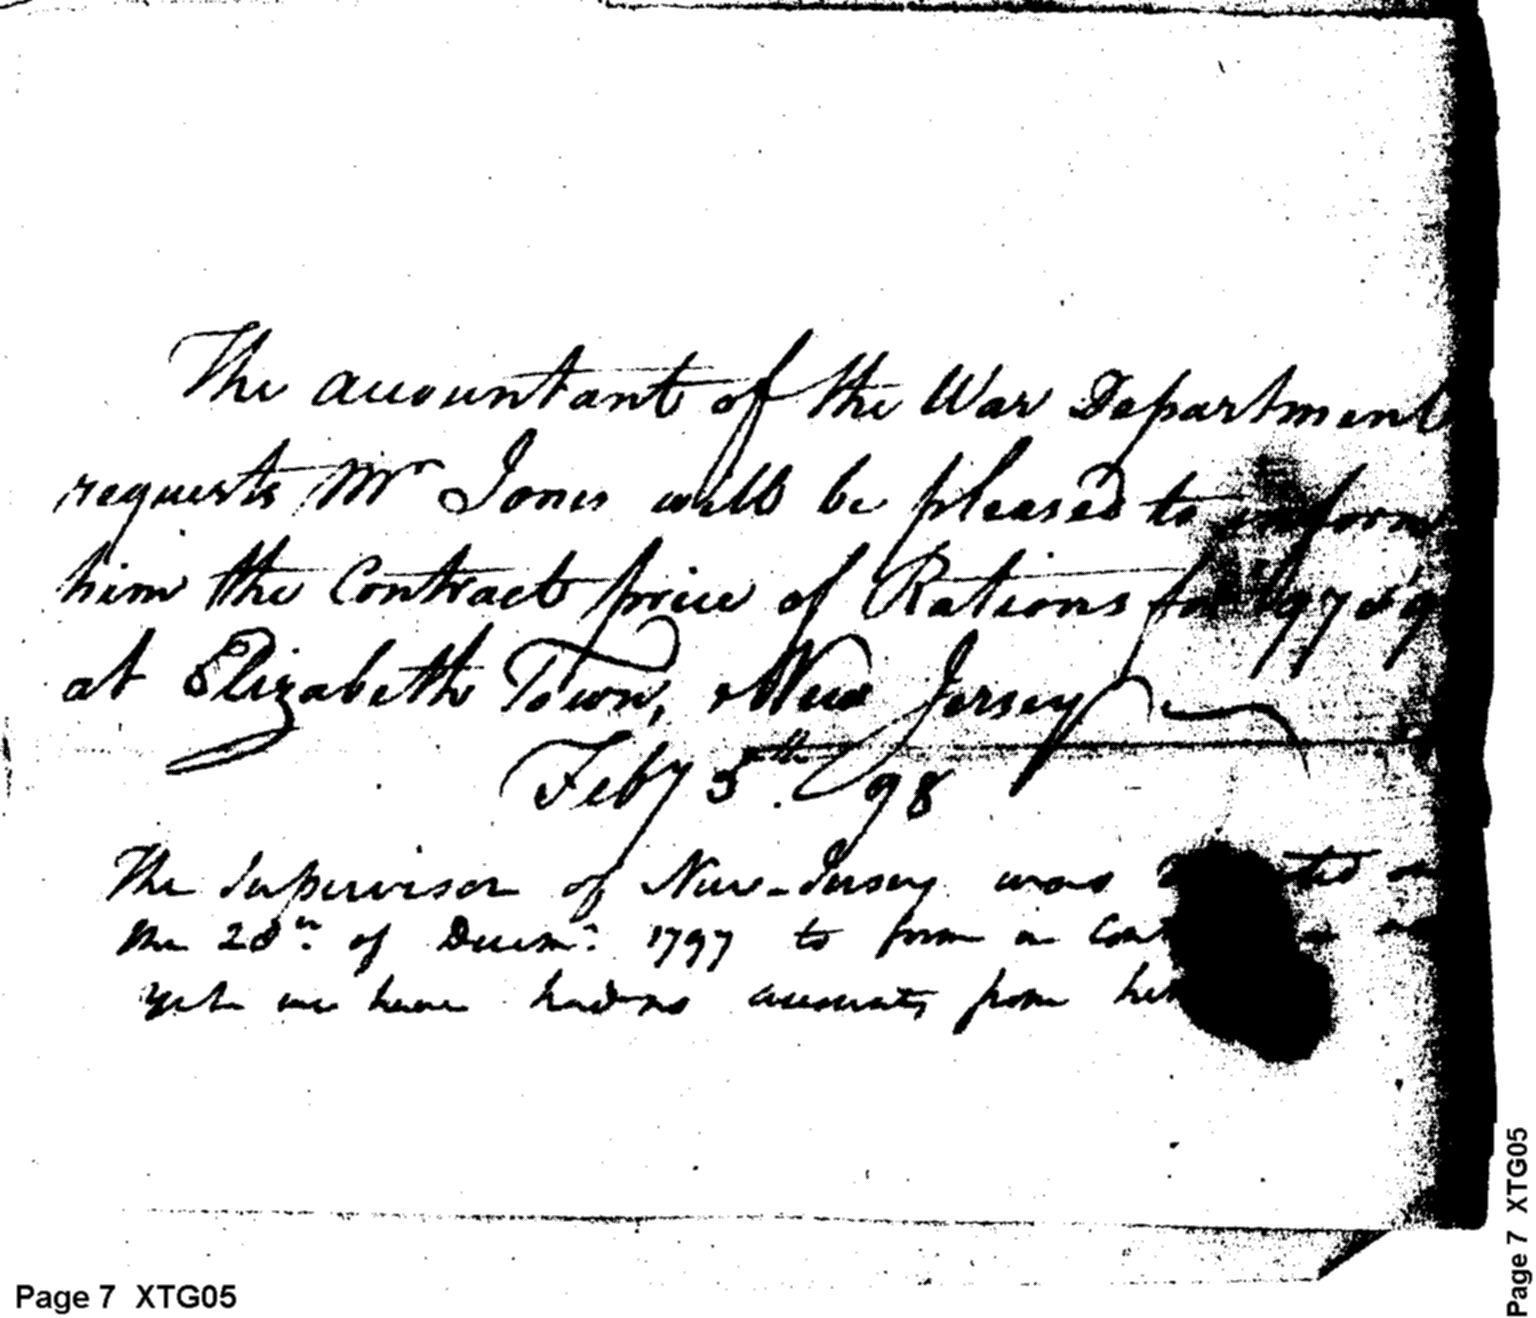 The accountant of the War Department
requests Mr Jones will be pleased to inform
him the Contract price of Rations for
at Elizabeth Town, New Jersey
Feby 5th. 98
The Supervisor of New-Jersey was
the 20th. of Decemr. 1797 to form a
yet we have had no accounts from
Page 7 XTG05
Page 7 XTG05